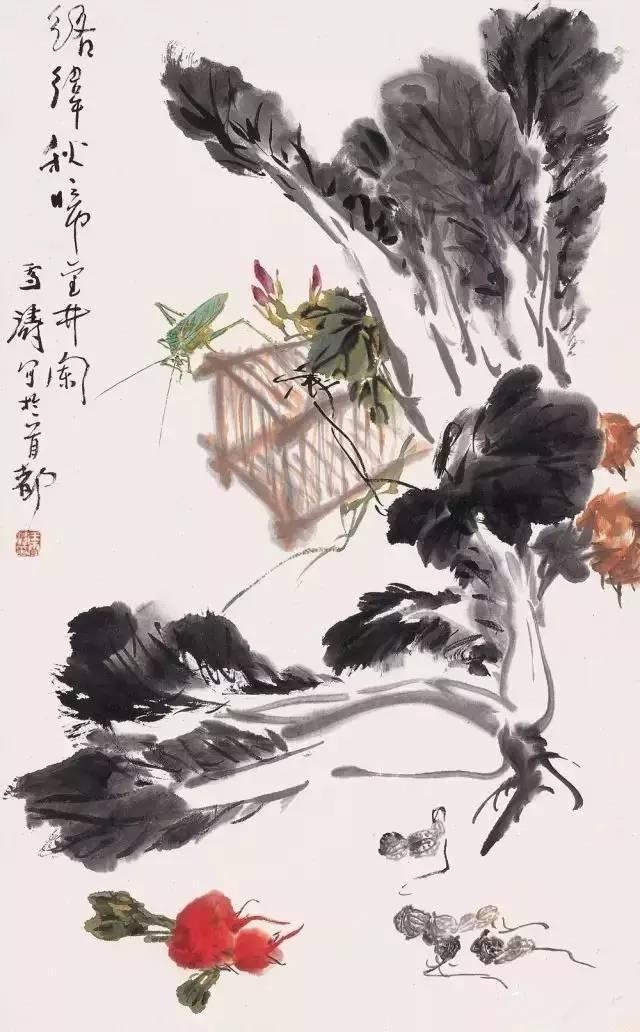 络纬秋啼金井阑
雪涛写于首都